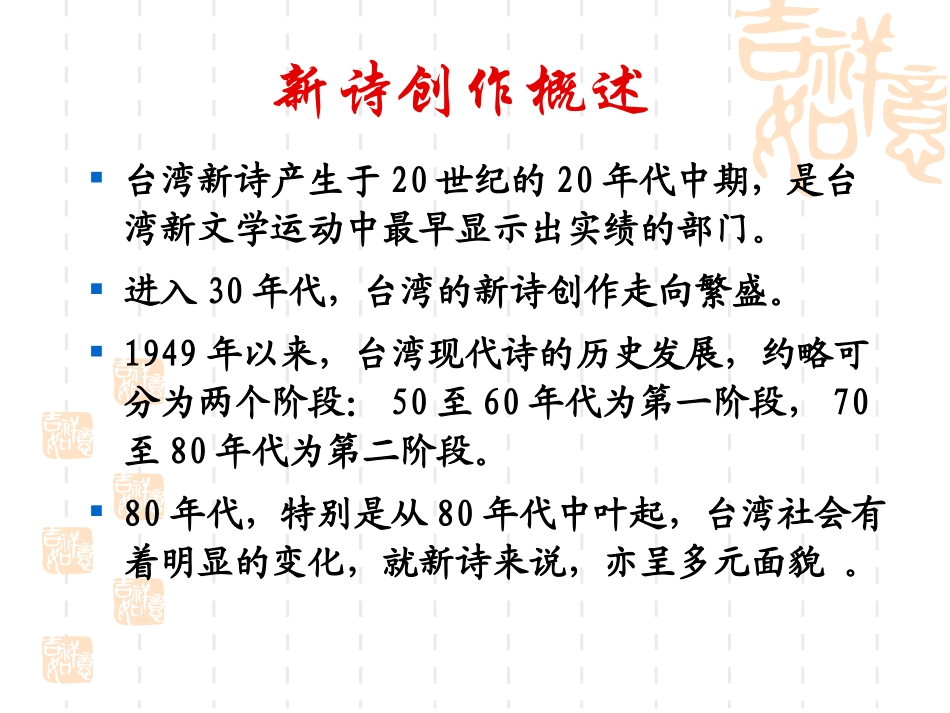 吉祥如意
新诗创作概述
台湾新诗产生于 20 世纪的 20 年代中期，是台
湾新文学运动中最早显示出实绩的部门。
进入 30 年代，台湾的新诗创作走向繁盛。
1949 年以来，台湾现代诗的历史发展，约略可
分为两个阶段： 50 至 60 年代为第一阶段， 70
至 80 年代为第二阶段。
80 年代，特别是从 80 年代中叶起，台湾社会有
着明显的变化，就新诗来说，亦呈多元面貌 。
吉祥如意
吉祥如意
吉祥如意
吉祥如意
吉祥如意
吉祥如意